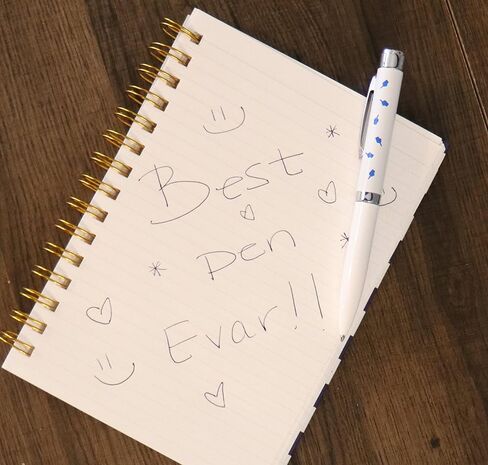 Best
pen
Evar!!